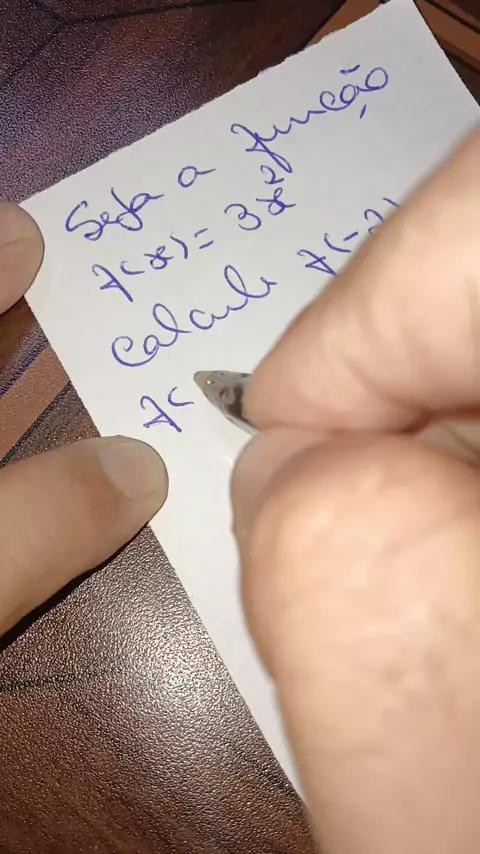 Seja a função
f(x) = 3x²
Calcule f(-2)
f(